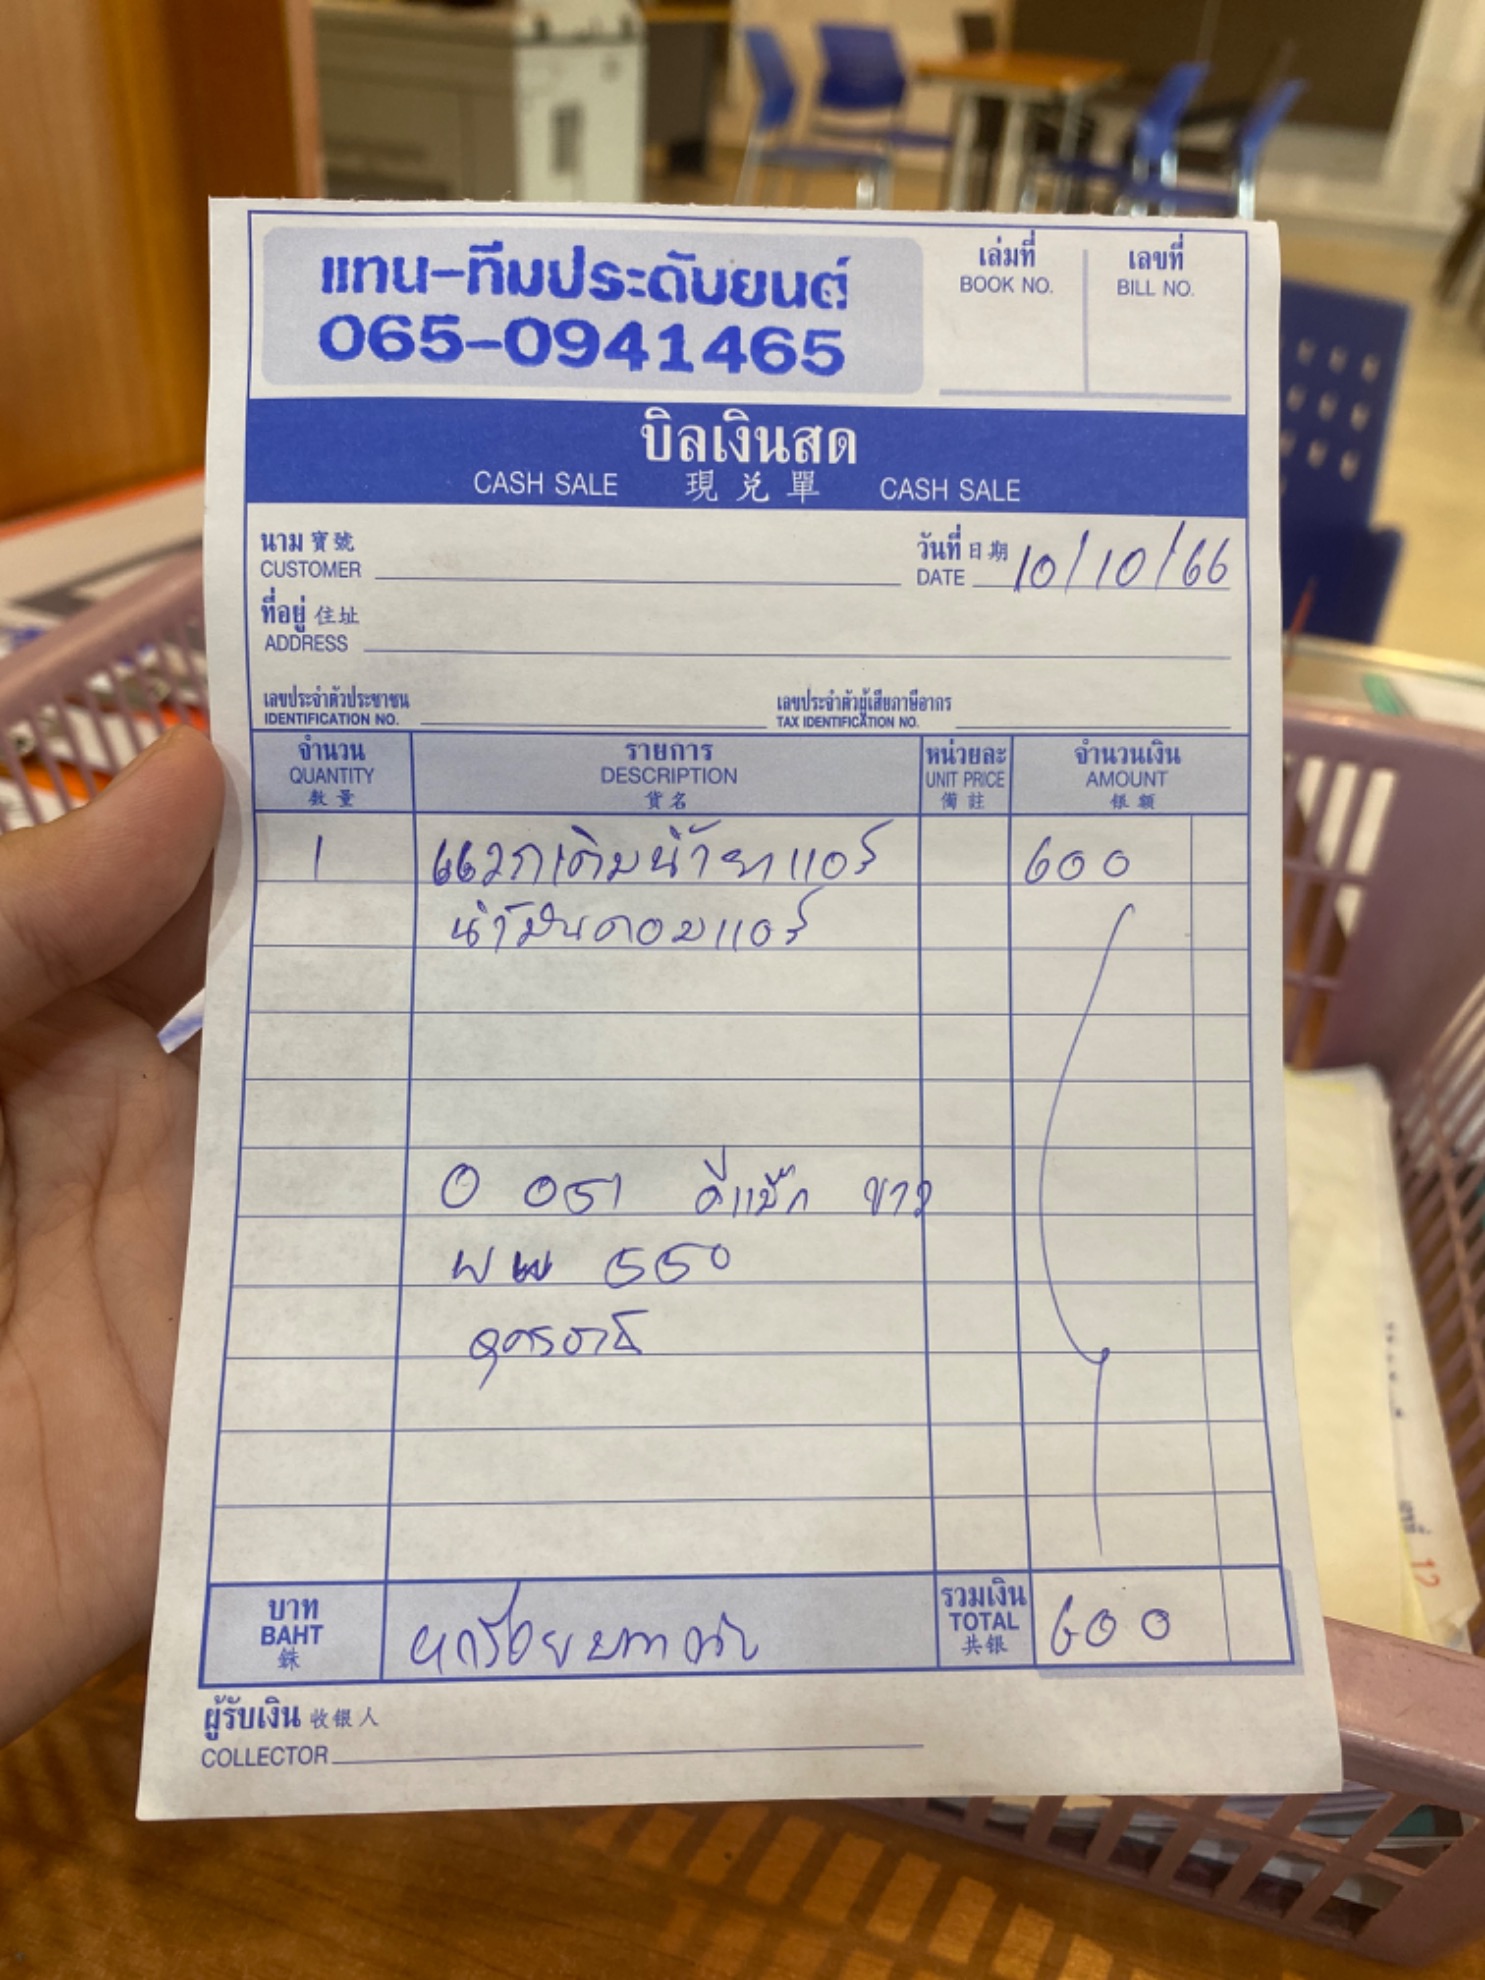 แทน-ทีมประดับยนต์
065-0941465
เล่มที่
BOOK NO.
เลขที่
BILL NO.
บิลเงินสด
CASH SALE 現兌單 CASH SALE
นาม 寶號
CUSTOMER
วันที่ 日期
DATE 10/10/66
ที่อยู่ 住址
ADDRESS
เลขประจำตัวประชาชน
IDENTIFICATION NO.
เลขประจำตัวผู้เสียภาษีอากร
TAX IDENTIFICATION NO.
จำนวน
QUANTITY
數量
รายการ
DESCRIPTION
貨名
หน่วยละ
UNIT PRICE
備註
จำนวนเงิน
AMOUNT
銀額
1 แวคเติมน้ำยาแอร์ 600
น้ำมันคอมแอร์
O 051 ดีแม็ก ขาว
550
อุดรธานี
บาท
BAHT
銖
หกร้อยบาท
รวมเงิน
TOTAL
共銀
600
ผู้รับเงิน 收銀人
COLLECTOR
12